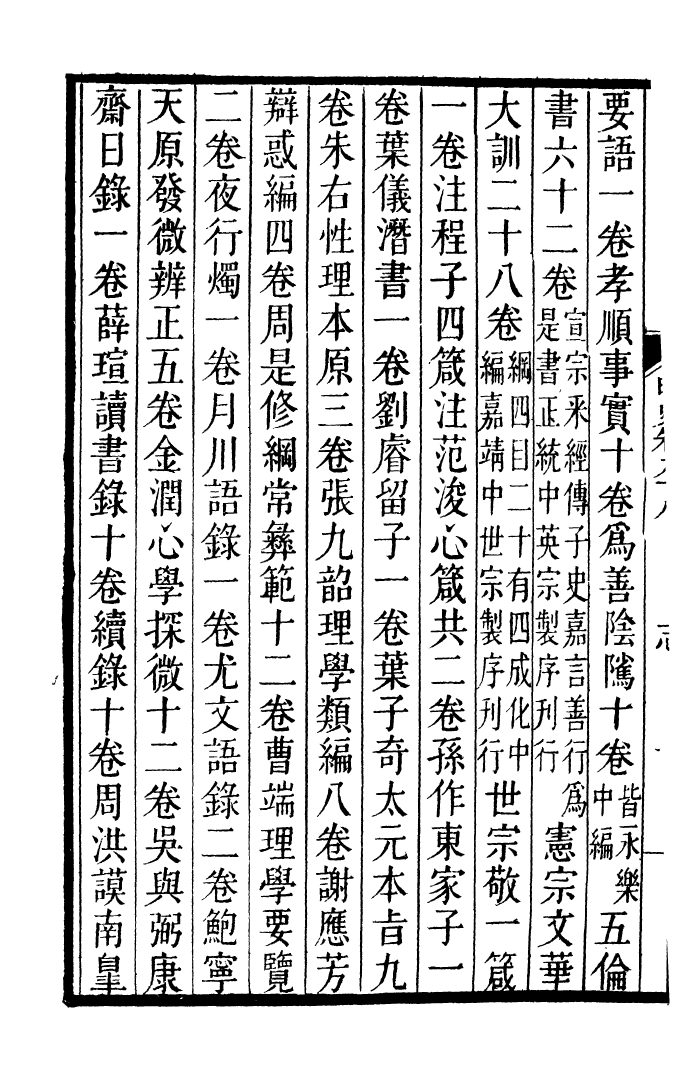 要語一卷孝順事實十卷爲善陰隲十卷皆永樂中編五倫
書六十二卷宣宗采經傳子史嘉言善行爲是書正統中英宗製序刊行憲宗文華
大訓二十八卷綱四目二十有四成化中編嘉靖中世宗製序刊行世宗敬一箴
一卷注程子四箴注范浚心箴共二卷孫作東家子一
卷葉儀潛書一卷劉睿留子一卷葉子奇太元本旨九
卷朱右性理本原三卷張九韶理學類編八卷謝應芳
辯惑編四卷周是修綱常彝範十二卷曹端理學要覽
二卷夜行燭一卷月川語錄一卷尤文語錄二卷鮑寧
天原發微辨正五卷金潤心學探微十二卷吳與弼康
齋日錄一卷薛瑄讀書錄十卷續錄十卷周洪謨南臯